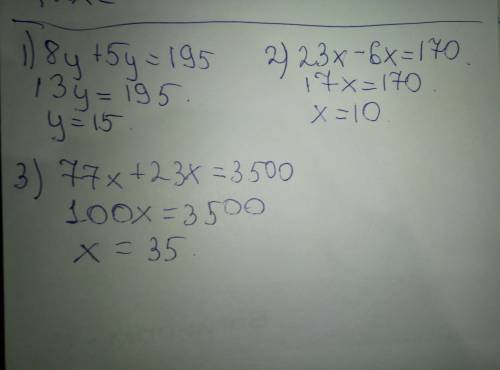 1) 8y + 5y = 195
13y = 195.
y = 15.
2) 23x - 6x = 170.
17x = 170.
x = 10.
3) 77x + 23x = 3500
100x = 3500
x = 35.